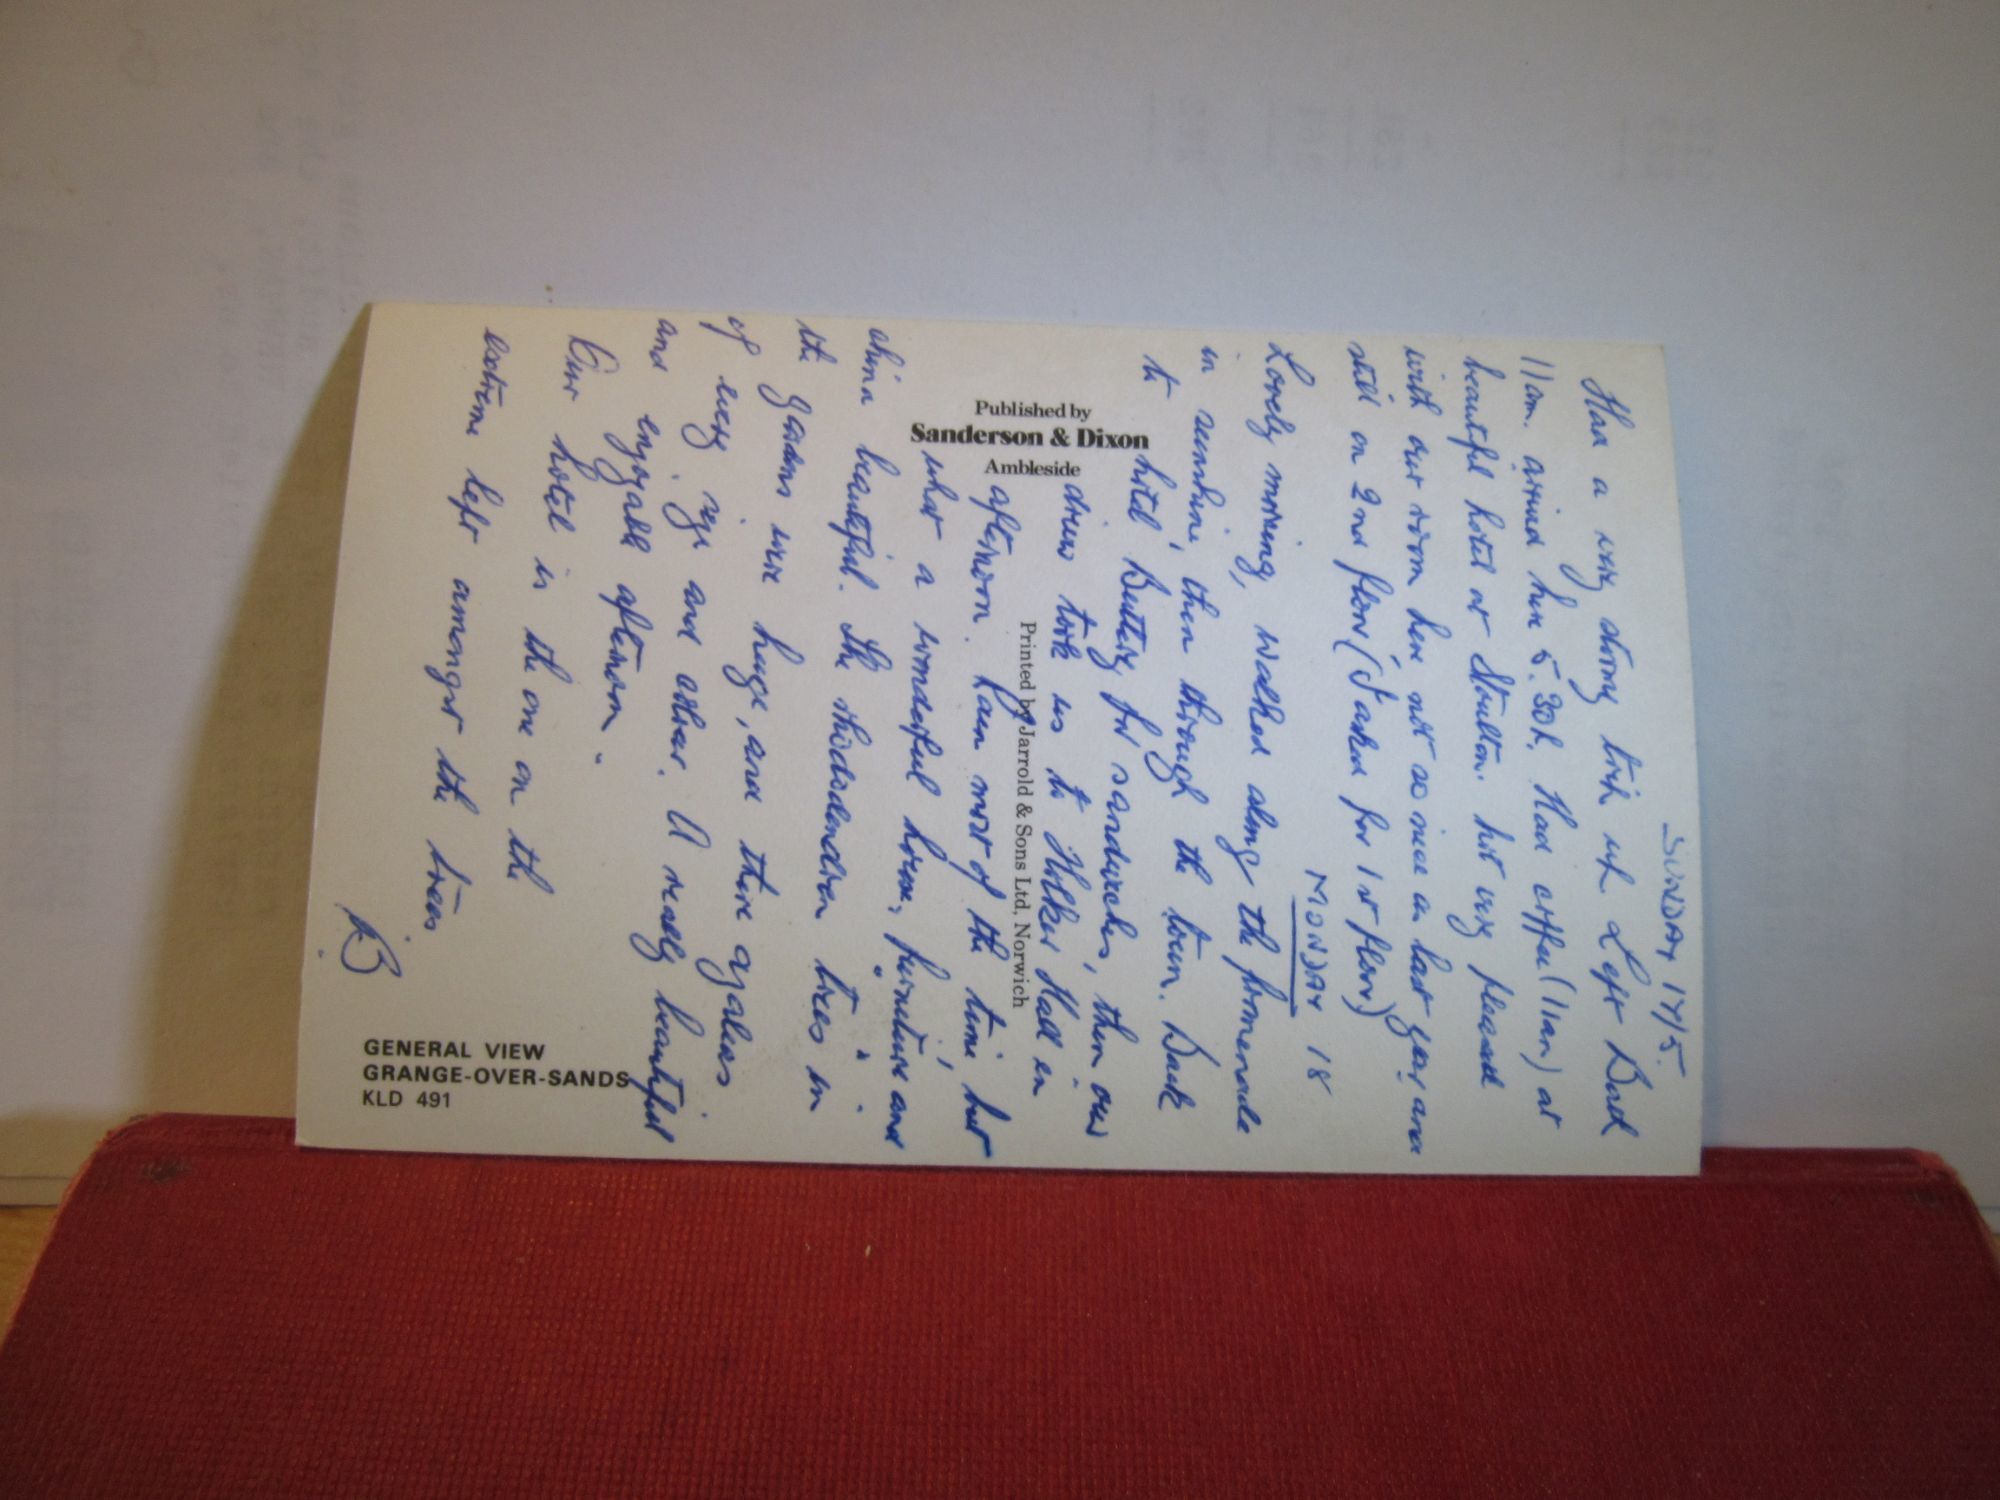 SUNDAY 17/5.
Had a very stormy trip up. Left Bath
11am. arrived here 5.30h. Had coffee (11am) at
beautiful hotel at Stoulton. Not very pleased
with our room here not so nice as last year and
still on 2nd floor (I asked for 1st floor)
MONDAY 18
Lovely morning, walked along the promenade
in sunshine, then through the town. Back
to hotel Buttery for sandwiches, then our
driver took us to Holker Hall in
afternoon. Rain most of the time but
what a wonderful house, furniture and
china beautiful. The rhododendron trees in
the gardens were huge, and there azaleas
of every size and colour. A really beautiful
and enjoyable afternoon.
Our hotel is the one on the
extreme left amongst the trees
B.
Published by
Sanderson & Dixon
Ambleside
Printed by Jarrold & Sons Ltd, Norwich
GENERAL VIEW
GRANGE-OVER-SANDS
KLD 491